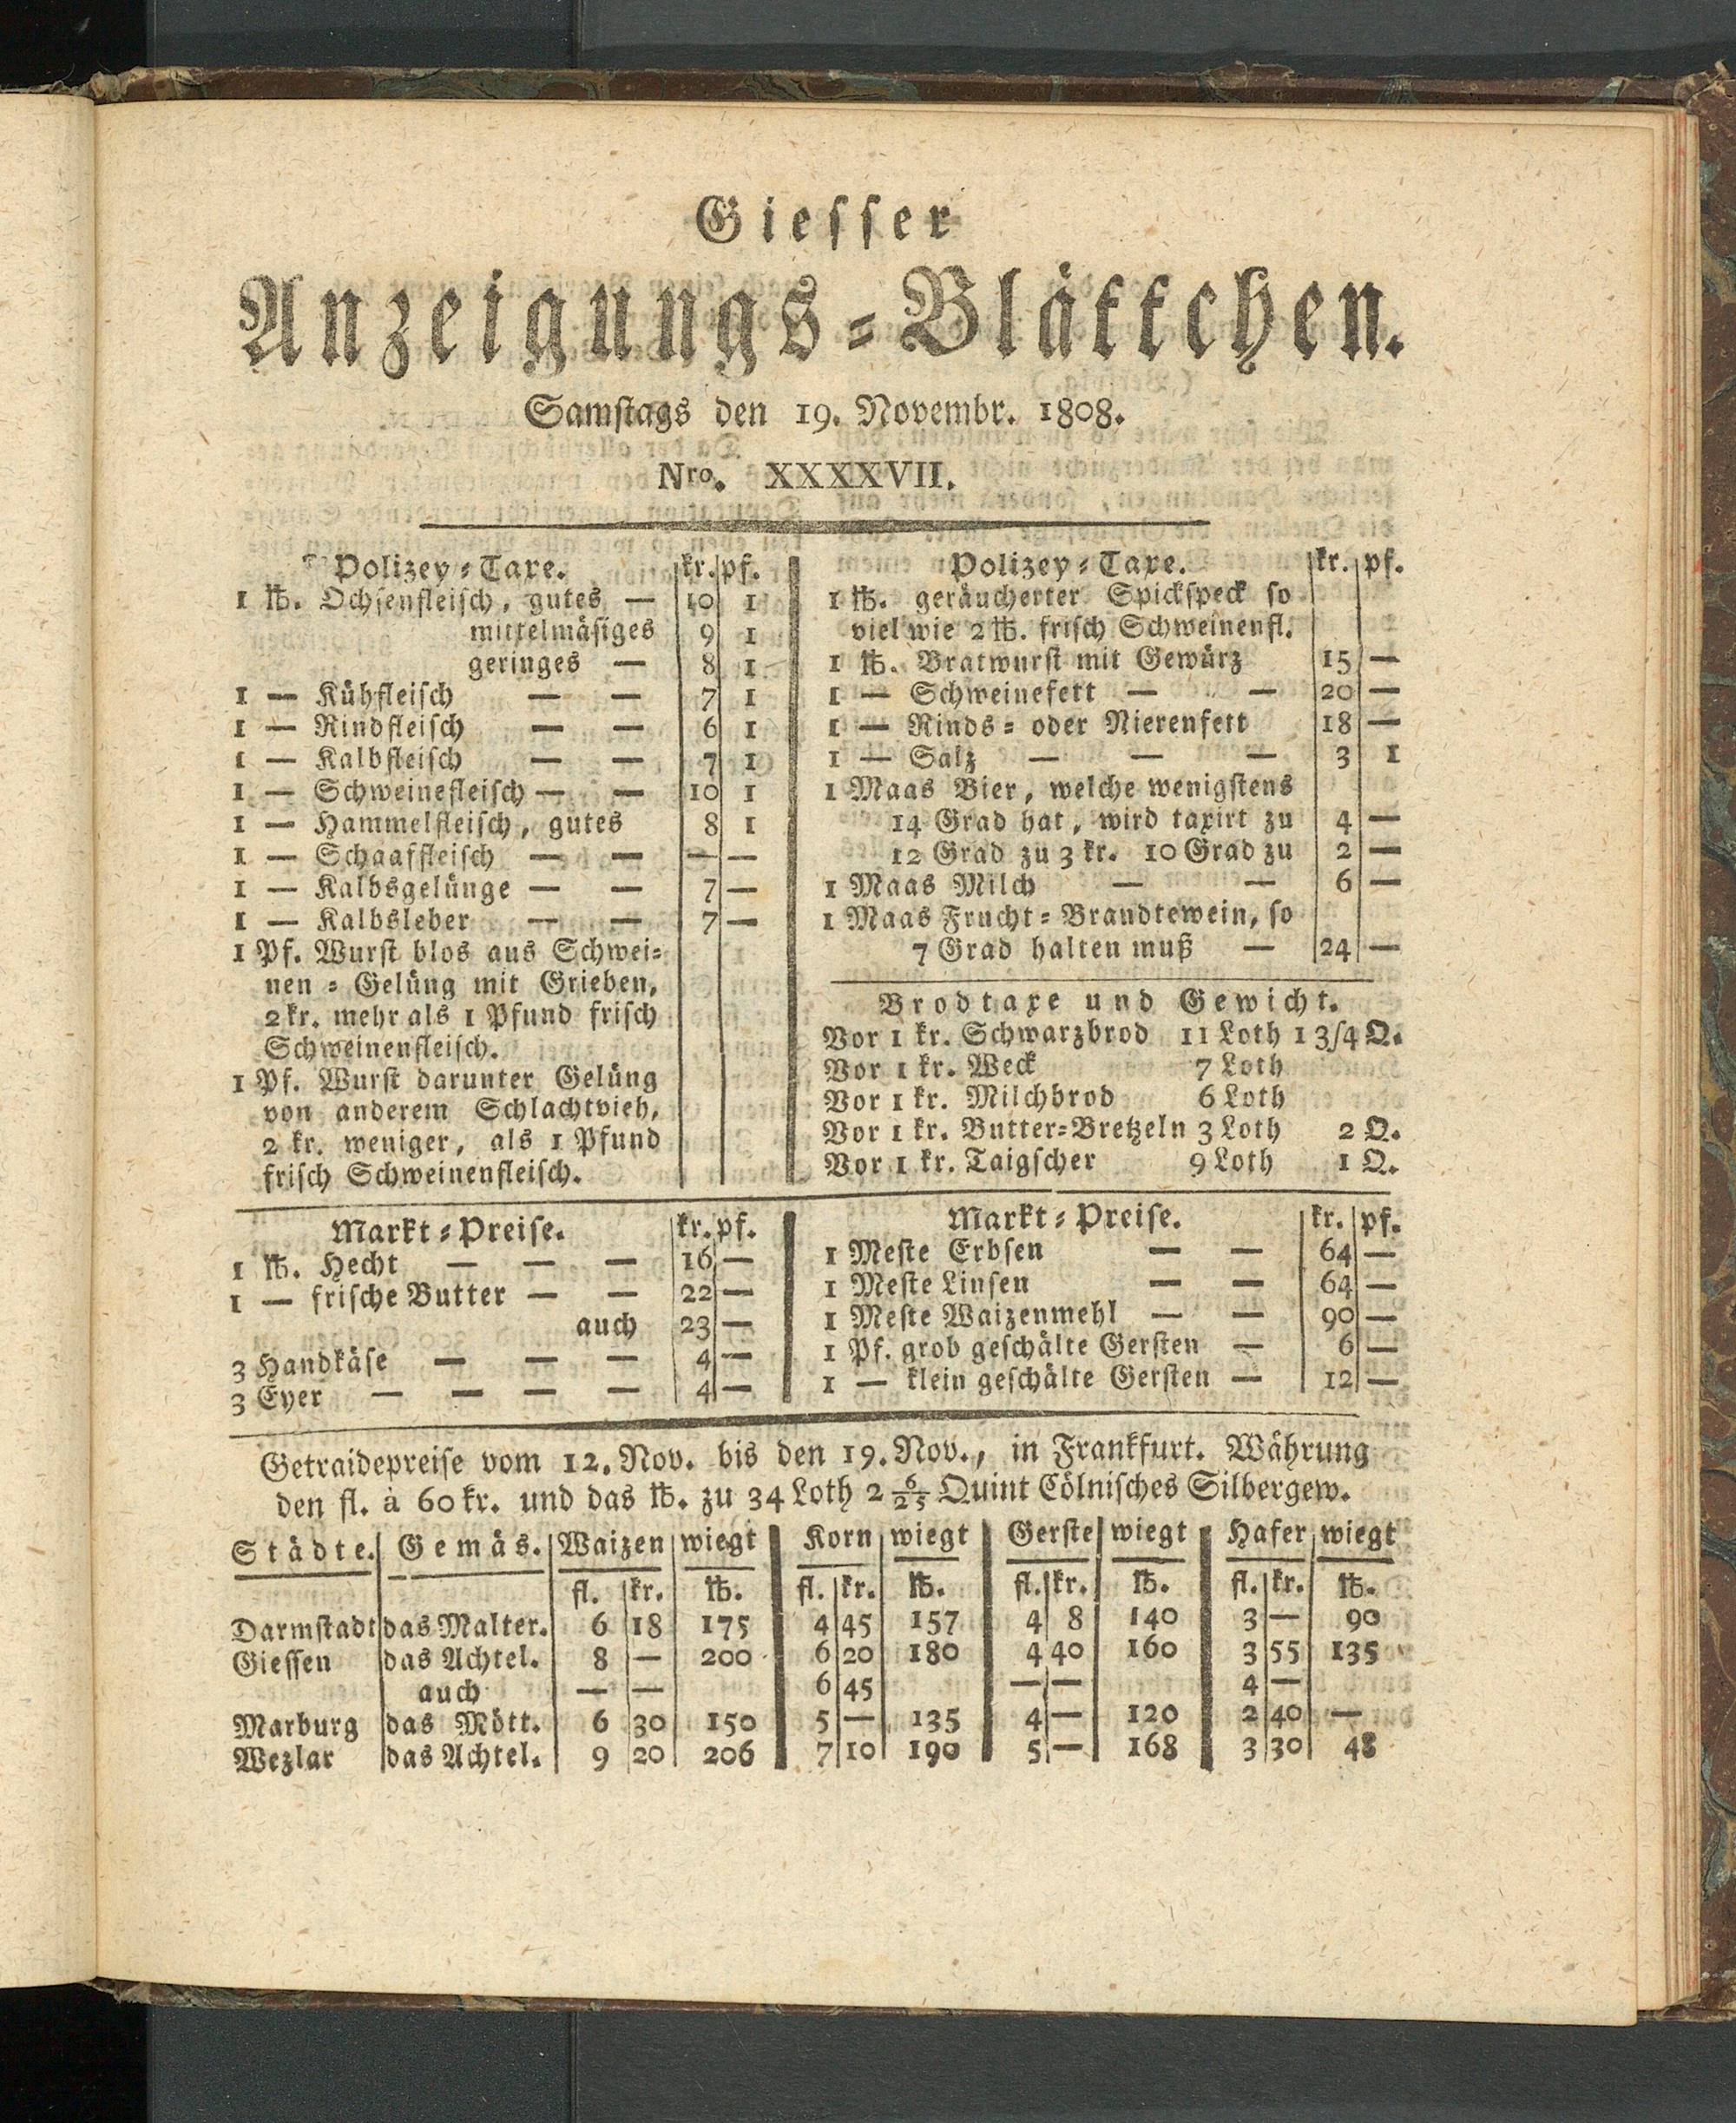 Giesser
Anzeigungs-Blättchen.
Samstags den 19. Novembr. 1808.
Nro. XXXXVII.
Polizey-Taxe. kr. pf.
1 ℔. Ochsenfleisch, gutes — 10 1
mittelmäsiges 9 1
geringes — 8 1
1 — Kühfleisch — — 7 1
1 — Rindfleisch — — 6 1
1 — Kalbfleisch — — 7 1
1 — Schweinefleisch — — 10 1
1 — Hammelfleisch, gutes 8 1
1 — Schaaffleisch — — — —
1 — Kalbsgelünge — — 7 —
1 — Kalbsleber — — 7 —
1 Pf. Wurst blos aus Schwei-
nen-Gelüng mit Grieben,
2 kr. mehr als 1 Pfund frisch
Schweinenfleisch.
1 Pf. Wurst darunter Gelüng
von anderem Schlachtvieh,
2 kr. weniger, als 1 Pfund
frisch Schweinenfleisch.
Polizey-Taxe. kr. pf.
1 ℔. geräucherter Spickspeck so
viel wie 2 ℔. frisch Schweinenfl.
1 ℔. Bratwurst mit Gewürz 15 —
1 — Schweinefett — — 20 —
1 — Rinds- oder Nierenfett 18 —
1 — Salz — — — 3 1
1 Maas Bier, welche wenigstens
14 Grad hat, wird taxirt zu 4 —
12 Grad zu 3 kr. 10 Grad zu 2 —
1 Maas Milch — — 6 —
1 Maas Frucht-Brandtewein, so
7 Grad halten muß — 24 —
Brodtaxe und Gewicht.
Vor 1 kr. Schwarzbrod 11 Loth 1 3/4 Q.
Vor 1 kr. Weck 7 Loth
Vor 1 kr. Milchbrod 6 Loth
Vor 1 kr. Butter-Bretzeln 3 Loth 2 Q.
Vor 1 kr. Taigscher 9 Loth 1 Q.
Markt-Preise. kr. pf.
1 ℔. Hecht — — — 16 —
1 — frische Butter — — 22 —
auch 23 —
3 Handkäse — — — 4 —
3 Eyer — — — — 4 —
Markt-Preise. kr. pf.
1 Meste Erbsen — — 64 —
1 Meste Linsen — — 64 —
1 Meste Waizenmehl — — 90 —
1 Pf. grob geschälte Gersten — 6 —
1 — klein geschälte Gersten — 12 —
Getraidepreise vom 12. Nov. bis den 19. Nov., in Frankfurt. Währung
den fl. à 60 kr. und das ℔. zu 34 Loth 2 6/25 Quint Cölnisches Silbergew.
Städte. Gemäs. Waizen wiegt Korn wiegt Gerste wiegt Hafer wiegt
fl. kr. ℔. fl. kr. ℔. fl. kr. ℔. fl. kr. ℔.
Darmstadt das Malter. 6 18 175 4 45 157 4 8 140 3 — 90
Giessen das Achtel. 8 — 200 6 20 180 4 40 160 3 55 135
auch — — 6 45 — — 4 —
Marburg das Mött. 6 30 150 5 — 135 4 — 120 2 40 —
Wezlar das Achtel. 9 20 206 7 10 190 5 — 168 3 30 48